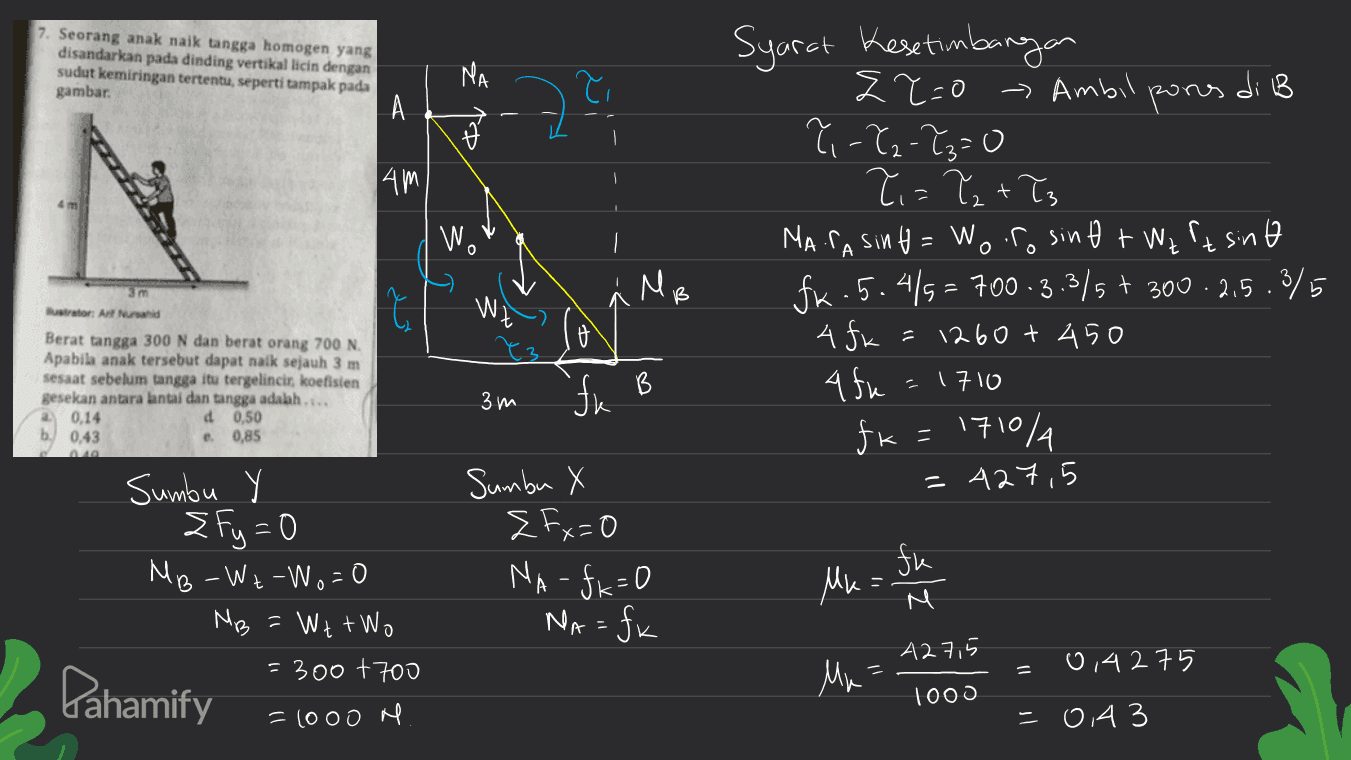 7. Seorang anak naik tangga homogen yang
disandarkan pada dinding vertikal licin dengan
sudut kemiringan tertentu, seperti tampak pada
gambar.
4 m
3 m
Ilustrator: Arif Nursahid
Berat tangga 300 N dan berat orang 700 N.
Apabila anak tersebut dapat naik sejauh 3 m
sesaat sebelum tangga itu tergelincir, koefisien
gesekan antara lantai dan tangga adalah ....
a. 0,14 d. 0,50
b. 0,43 e. 0,85
A
N_A
τ₁
θ
4m
W_o
τ₂
W_t
τ₃
θ
N_B
3m
f_k
B
Syarat Kesetimbangan
Στ=0 → Ambil poros di B
τ₁-τ₂-τ₃=0
τ₁=τ₂+τ₃
N_A.r_A sin θ = W_o.r_o sin θ + W_t r_t sin θ
f_k.5.4/5 = 700.3.3/5 + 300.2,5.3/5
4 f_k = 1260 + 450
4 f_k = 1710
f_k = 1710/4
= 427,5
Sumbu Y
ΣFy=0
N_B-W_t-W_o=0
N_B = W_t+W_o
= 300+700
= 1000 N.
Sumbu X
ΣFx=0
N_A-f_k=0
N_A=f_k
μ_k = f_k/N
μ_k = 427,5/1000 = 0,4275
= 0,43
Pahamify